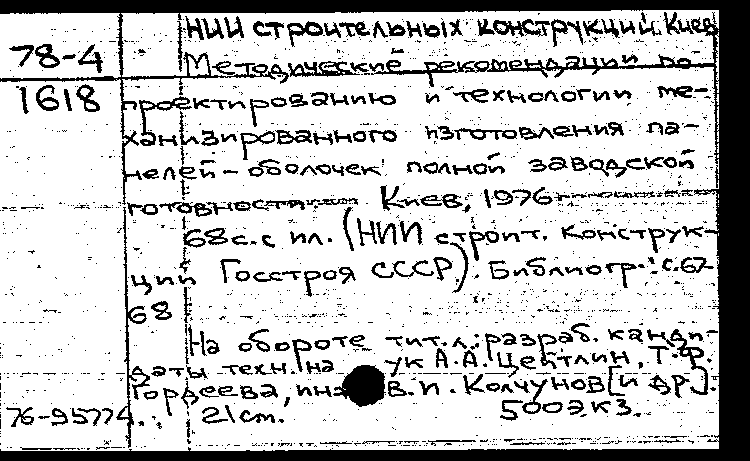 НИИ строительных конструкций. Киев
78-4
Методические рекомендации по
1618
проектированию и технологии ме-
ханизированного изготовления па-
нелей-оболочек полной заводской
готовности Киев, 1976
68 с. с ил. (НИИ строит. конструк-
ций Госстроя СССР). Библиогр.: с. 67-
68
На обороте тит. л.: разраб. канди-
даты техн. на ук А.А. Цейтлин, Т.Ф.
Гордеева, В.И. Колчунов [и др].
76-95774. 21 cm. 500 экз.